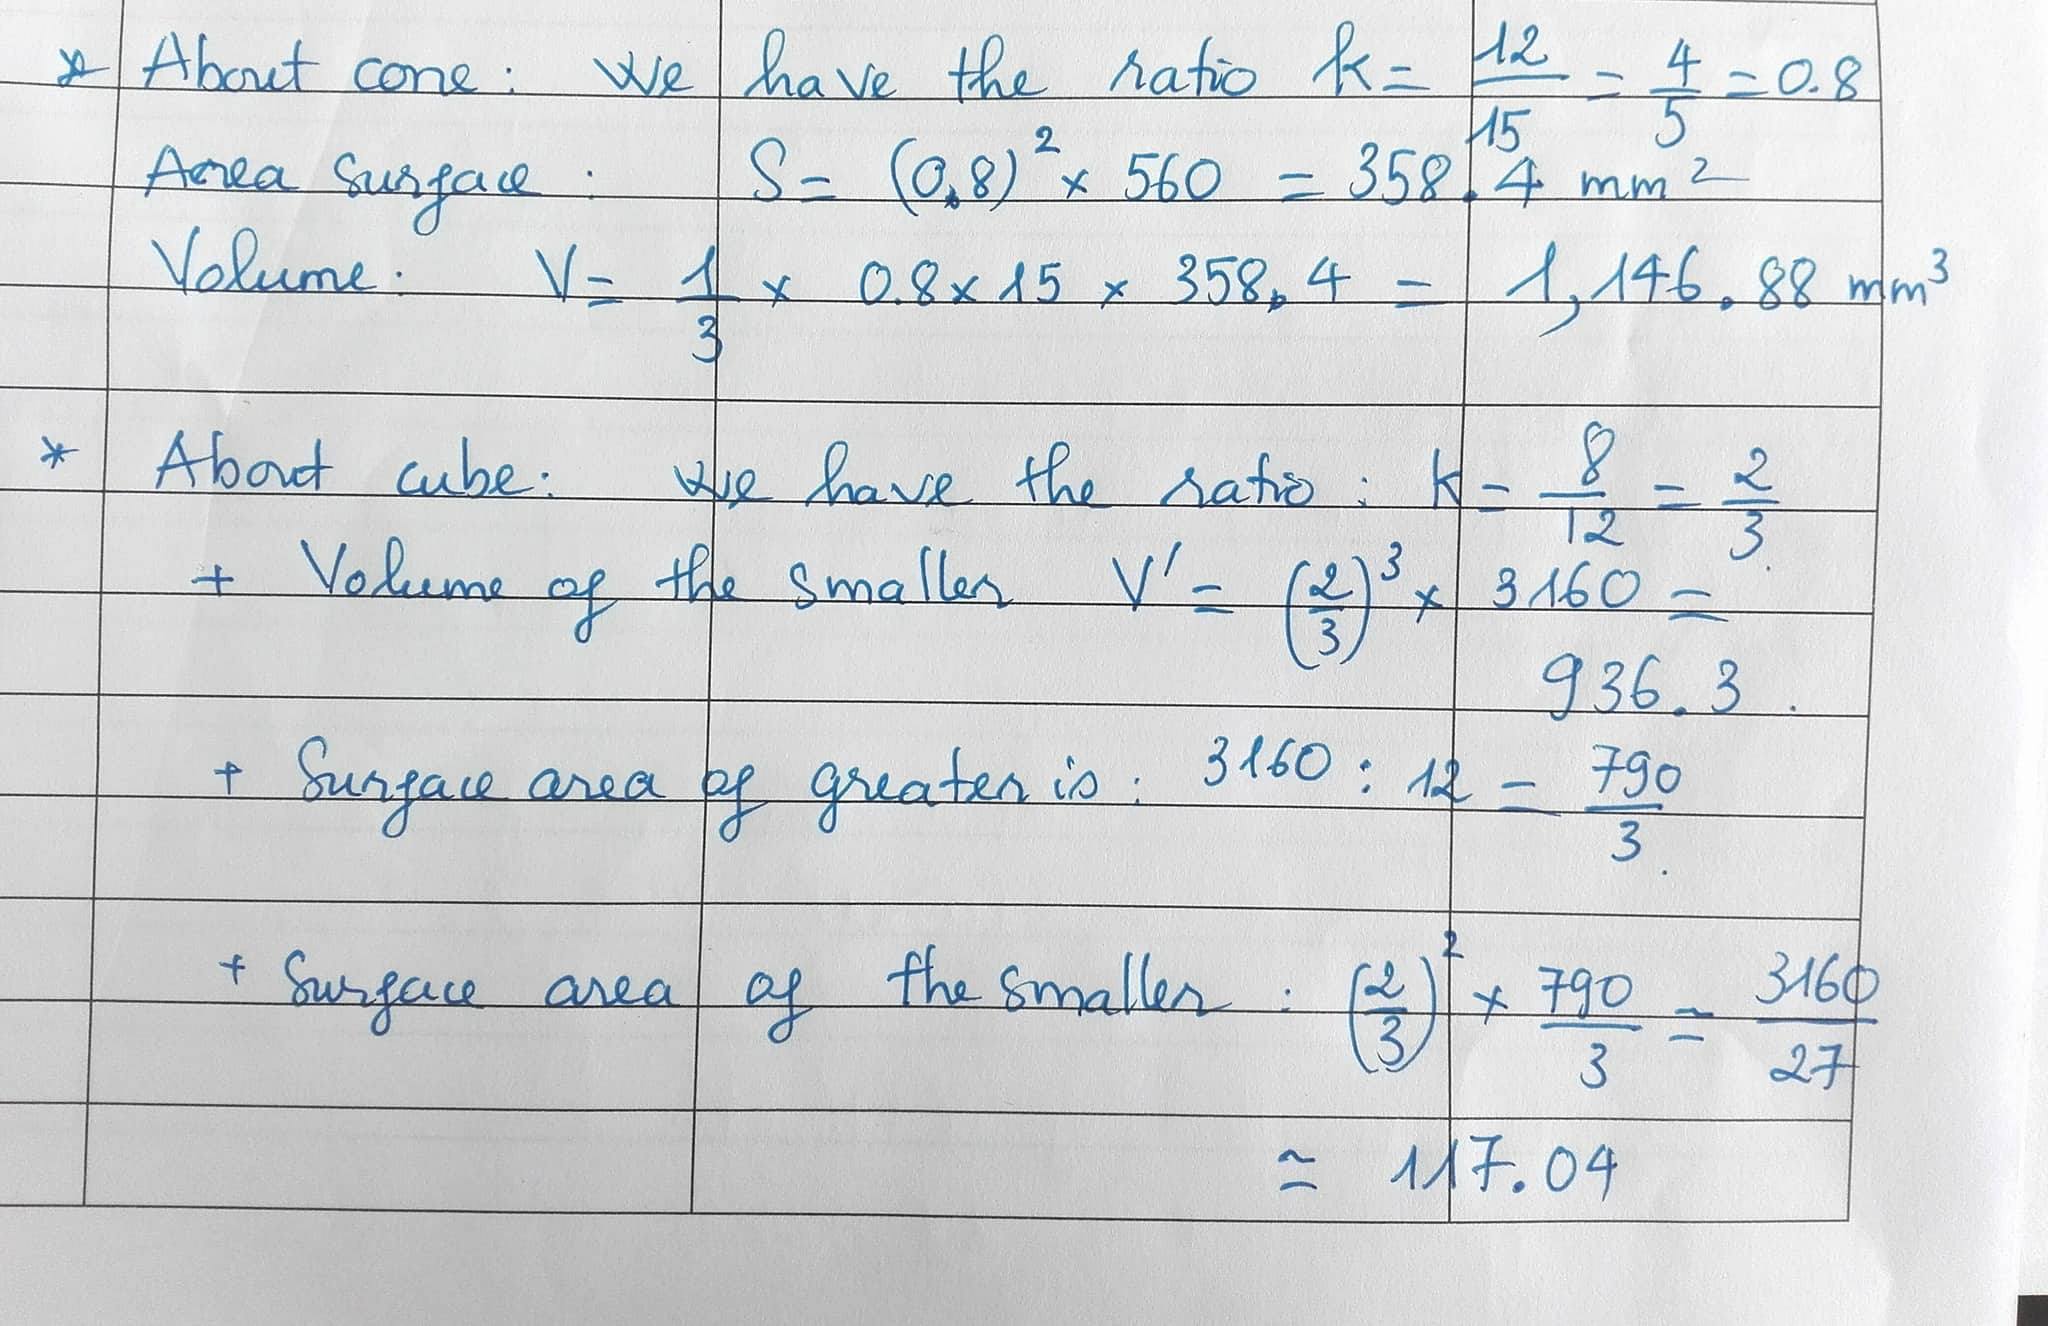 * About cone: We have the ratio k = 12/15 = 4/5 = 0.8
Area Surface: S = (0.8)² × 560 = 358.4 mm²
Volume: V = 1/3 × 0.8 × 15 × 358.4 = 1,146.88 mm³
* About cube: We have the ratio: k = 8/12 = 2/3.
+ Volume of the smaller V' = (2/3)³ × 3160 =
936.3.
+ Surface area of greater is: 3160 : 12 = 790/3.
+ Surface area of the smaller: (2/3)² × 790/3 = 3160/27
≃ 117.04